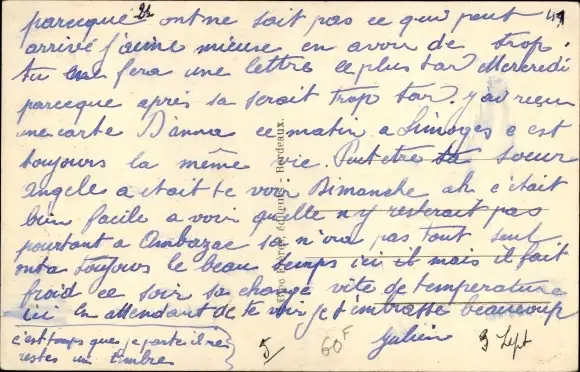 parceque on ne sait pas ce qui peut 49
arrivé j'aime mieuse en avoir de trop.
tu en fera une lettre le plus tar Mercredi
parceque après sa serait trop tar. y ai recu
une carte D'anna ce matin a Limoges c est
toujours la même vie. Peut etre ta soeur
angele a etait te voir Dimanche ah c'était
bien facile a voir quelle n y resterait pas
pourtant a Ambazac sa n'ira pas tout seul
on a toujours le beau temps ici il mais il fait
froid ce soir sa change vite de température
ici En attendant de te voir je t'embrasse beaucoup
c'est temps que je parte il ne
restes un timbre
Julien
3 Sept
5/
60F
éditeurs - Bordeaux.